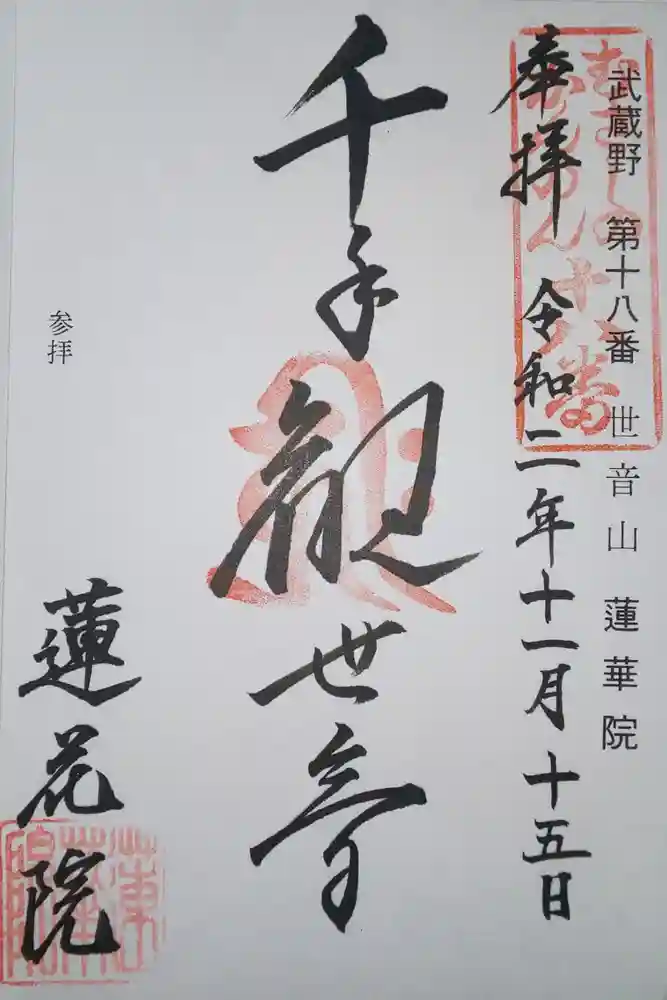 武蔵野 第十八番 世音山 蓮華院
むさしの
かんのん十八番
奉拝 令和二年十一月十五日
千手観世音
参拝
蓮花院
蓮華院